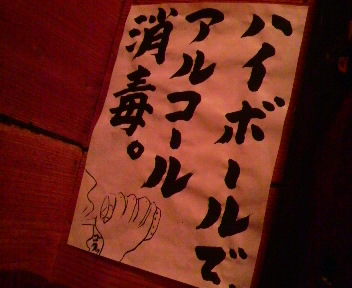 ハイボールで、
アルコール
消毒。